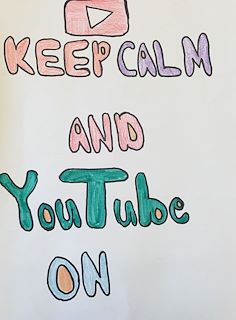 KEEP CALM
AND
YouTube
ON